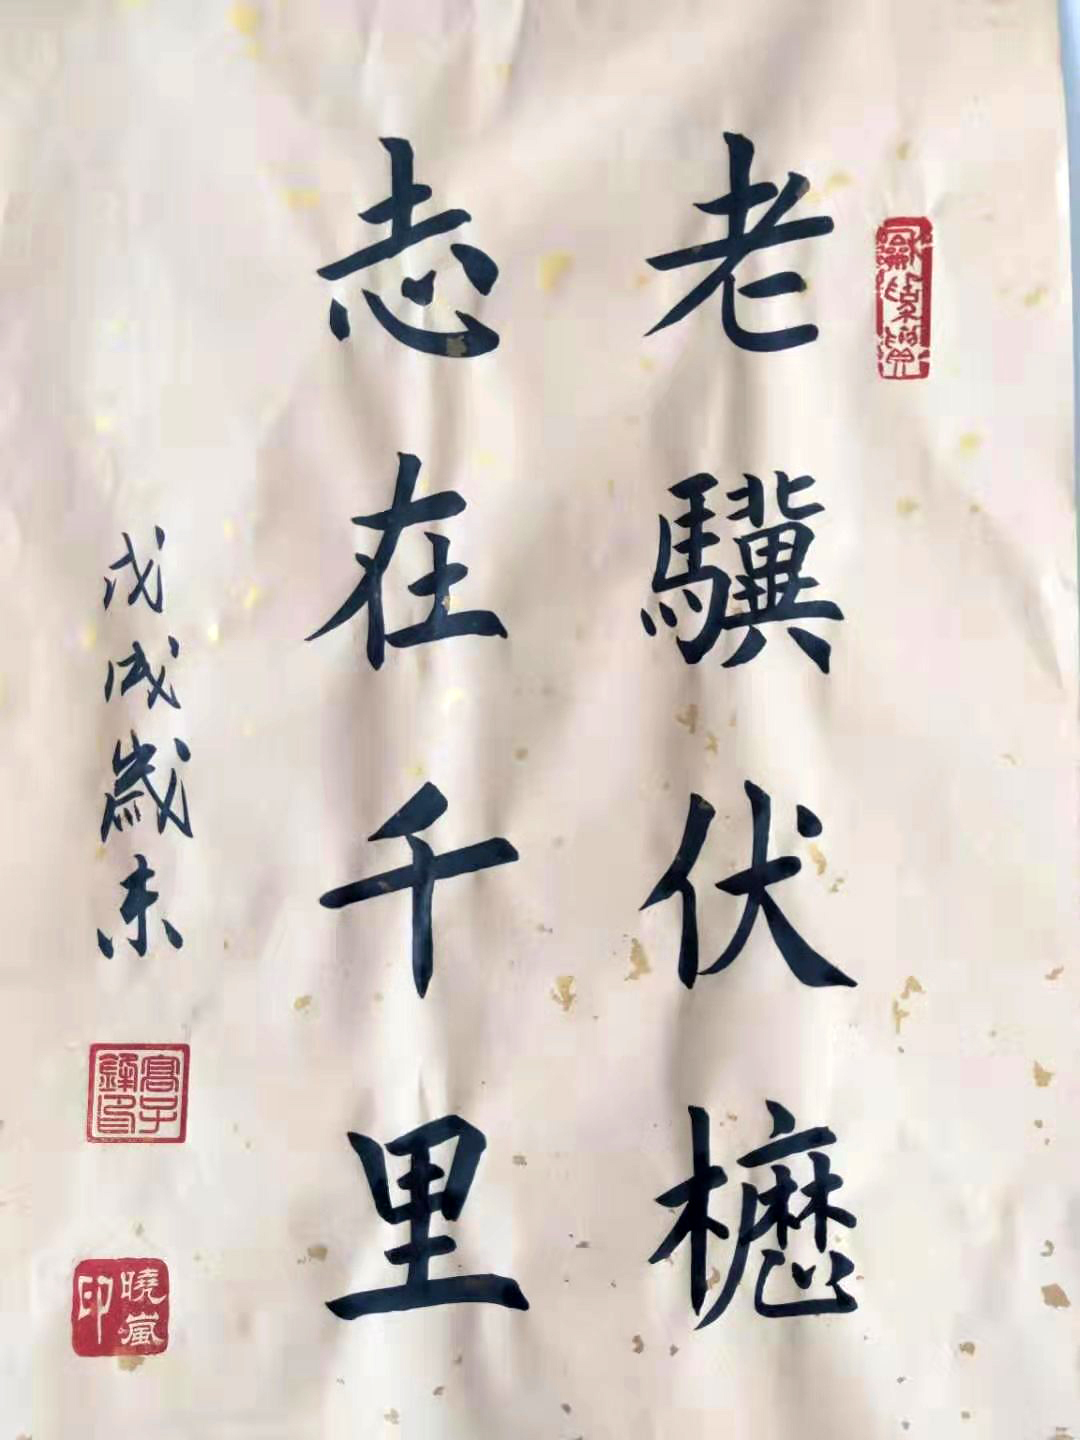 老驥伏櫪
志在千里
戊戌歲末
曉嵐印